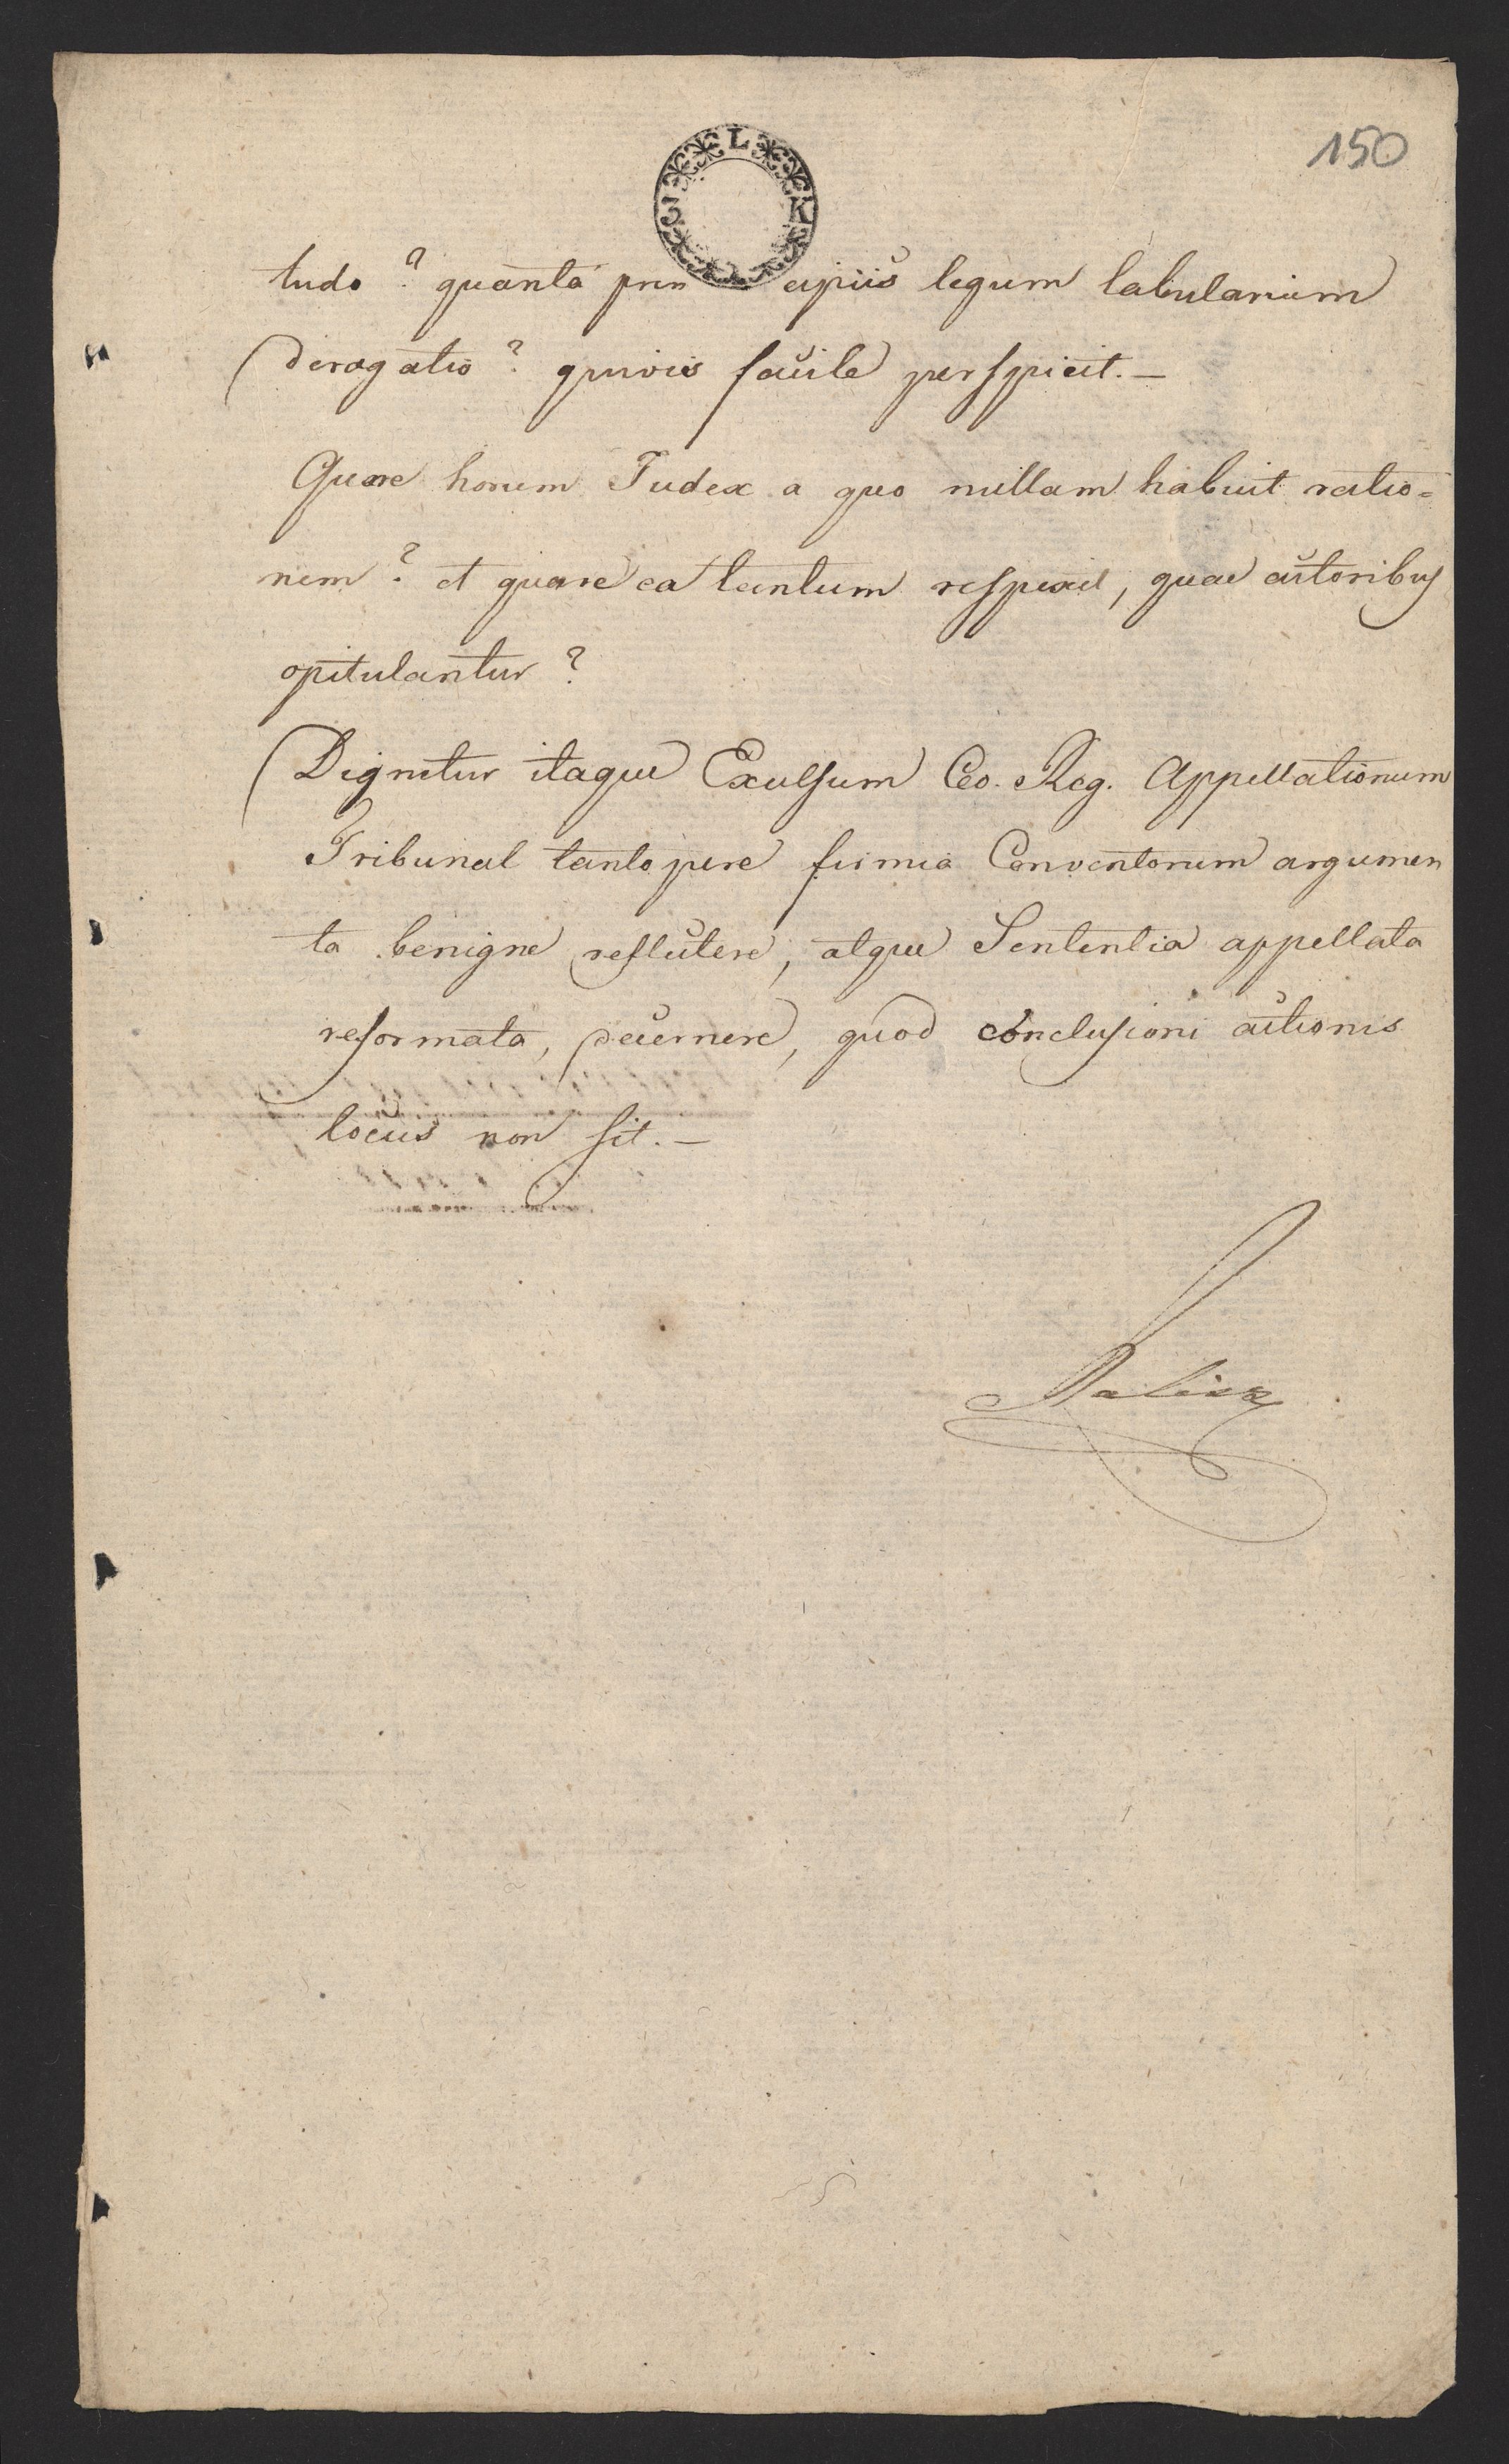 150
L
3 K
tudo? quanta prin cipiis legum tabularium
derogatio? quivis facile perspicit. —
Quare horum Judex a quo nullam habuit ratio=
nem? et quare ea tantum respexit, quae actoribus
opitulantur?
Dignetur itaque Excelsum Ceo. Reg. Appellationum
Tribunal tantopere firma Conventorum argumen
ta benigne reflectere, atque Sententia appellata
reformata, decernere, quod conclusioni actionis
locus non sit. —